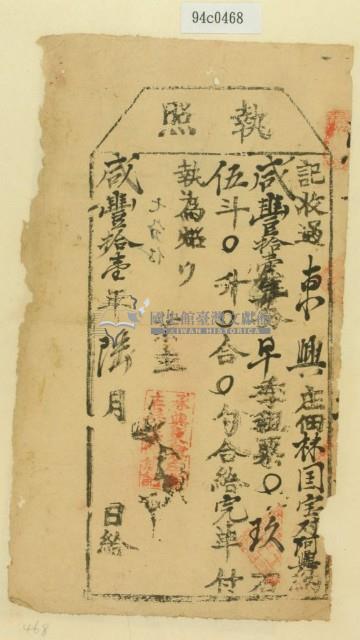 94c0468
執照
記收過東興庄佃林国宝
咸豐拾壹年早季租粟○玖石
伍斗○升○合○勺合給完单付
執為炤
咸豐拾壹年陸月 日給
國史館臺灣文獻館
TAIWAN HISTORICA
468